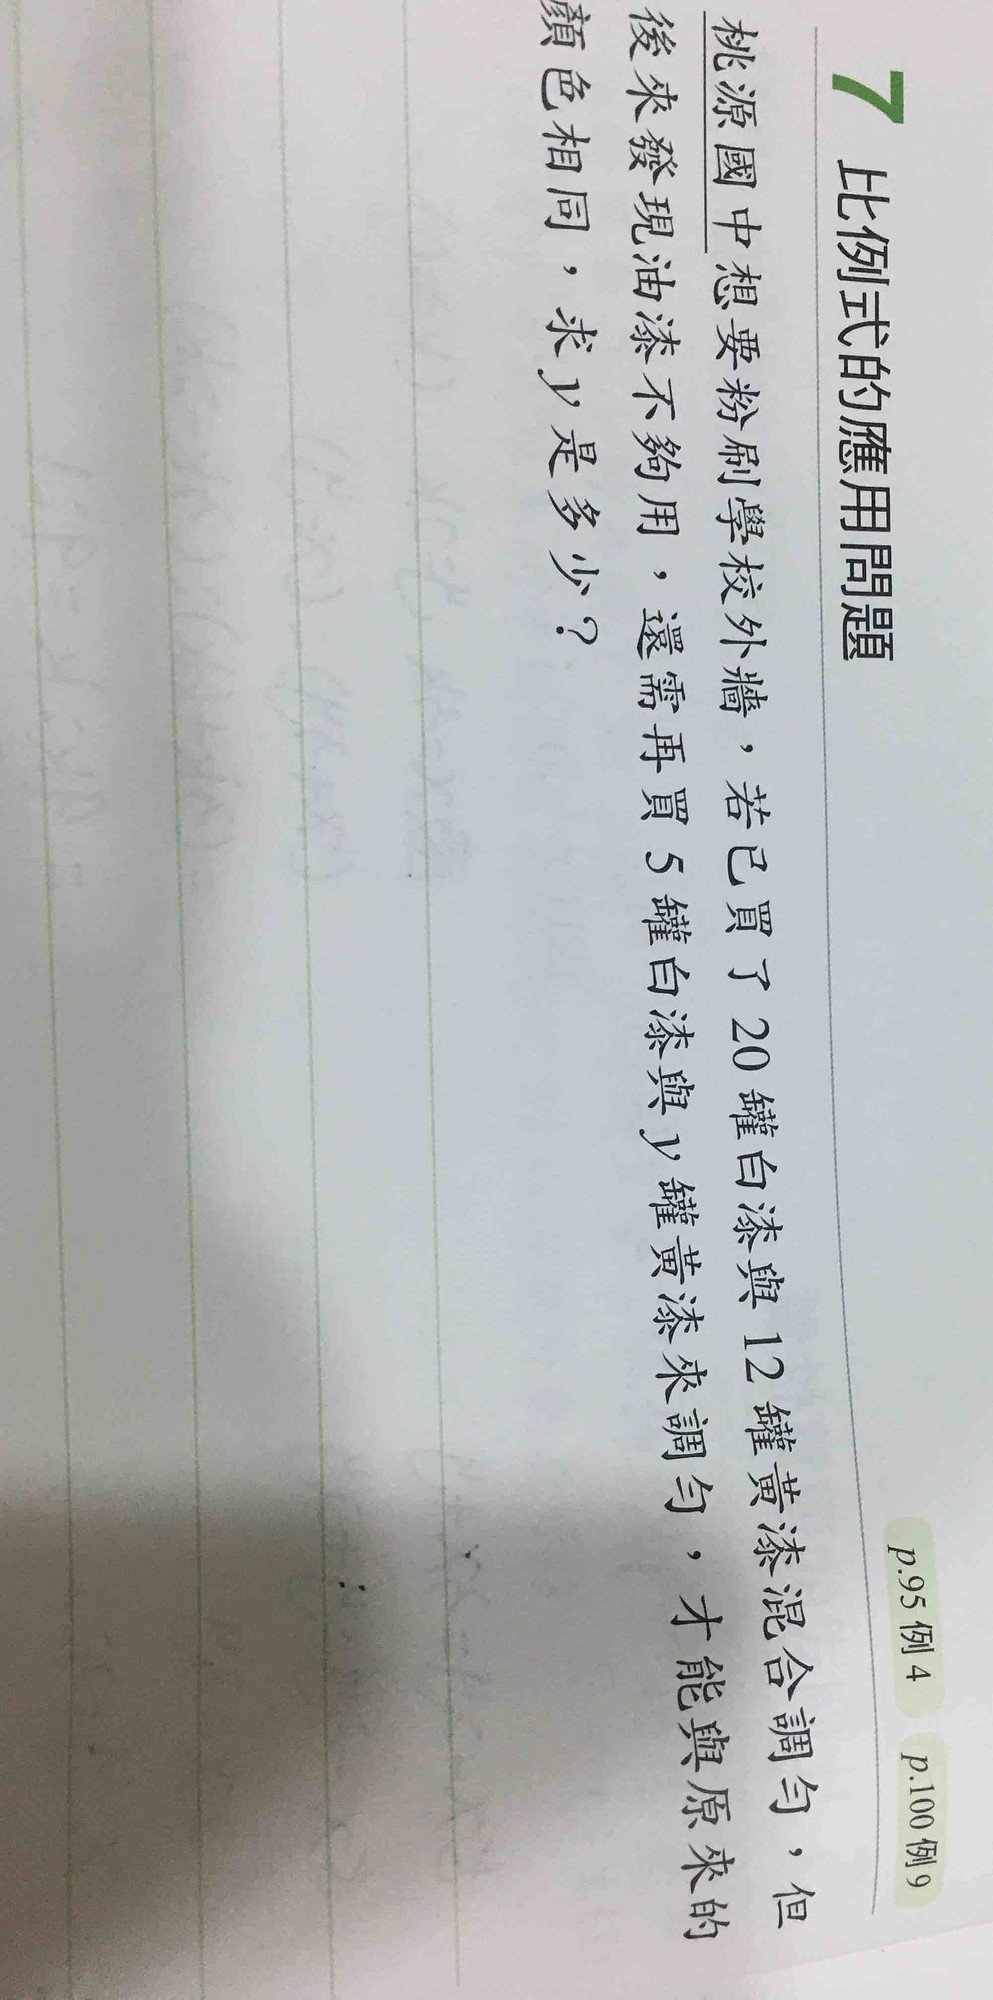 7 比例式的應用問題 p.95 例 4 p.100 例 9
桃源國中想要粉刷學校外牆，若已買了 20 罐白漆與 12 罐黃漆混合調勻，但
後來發現油漆不夠用，還需再買 5 罐白漆與 y 罐黃漆來調勻，才能與原來的
顏色相同，求 y 是多少？